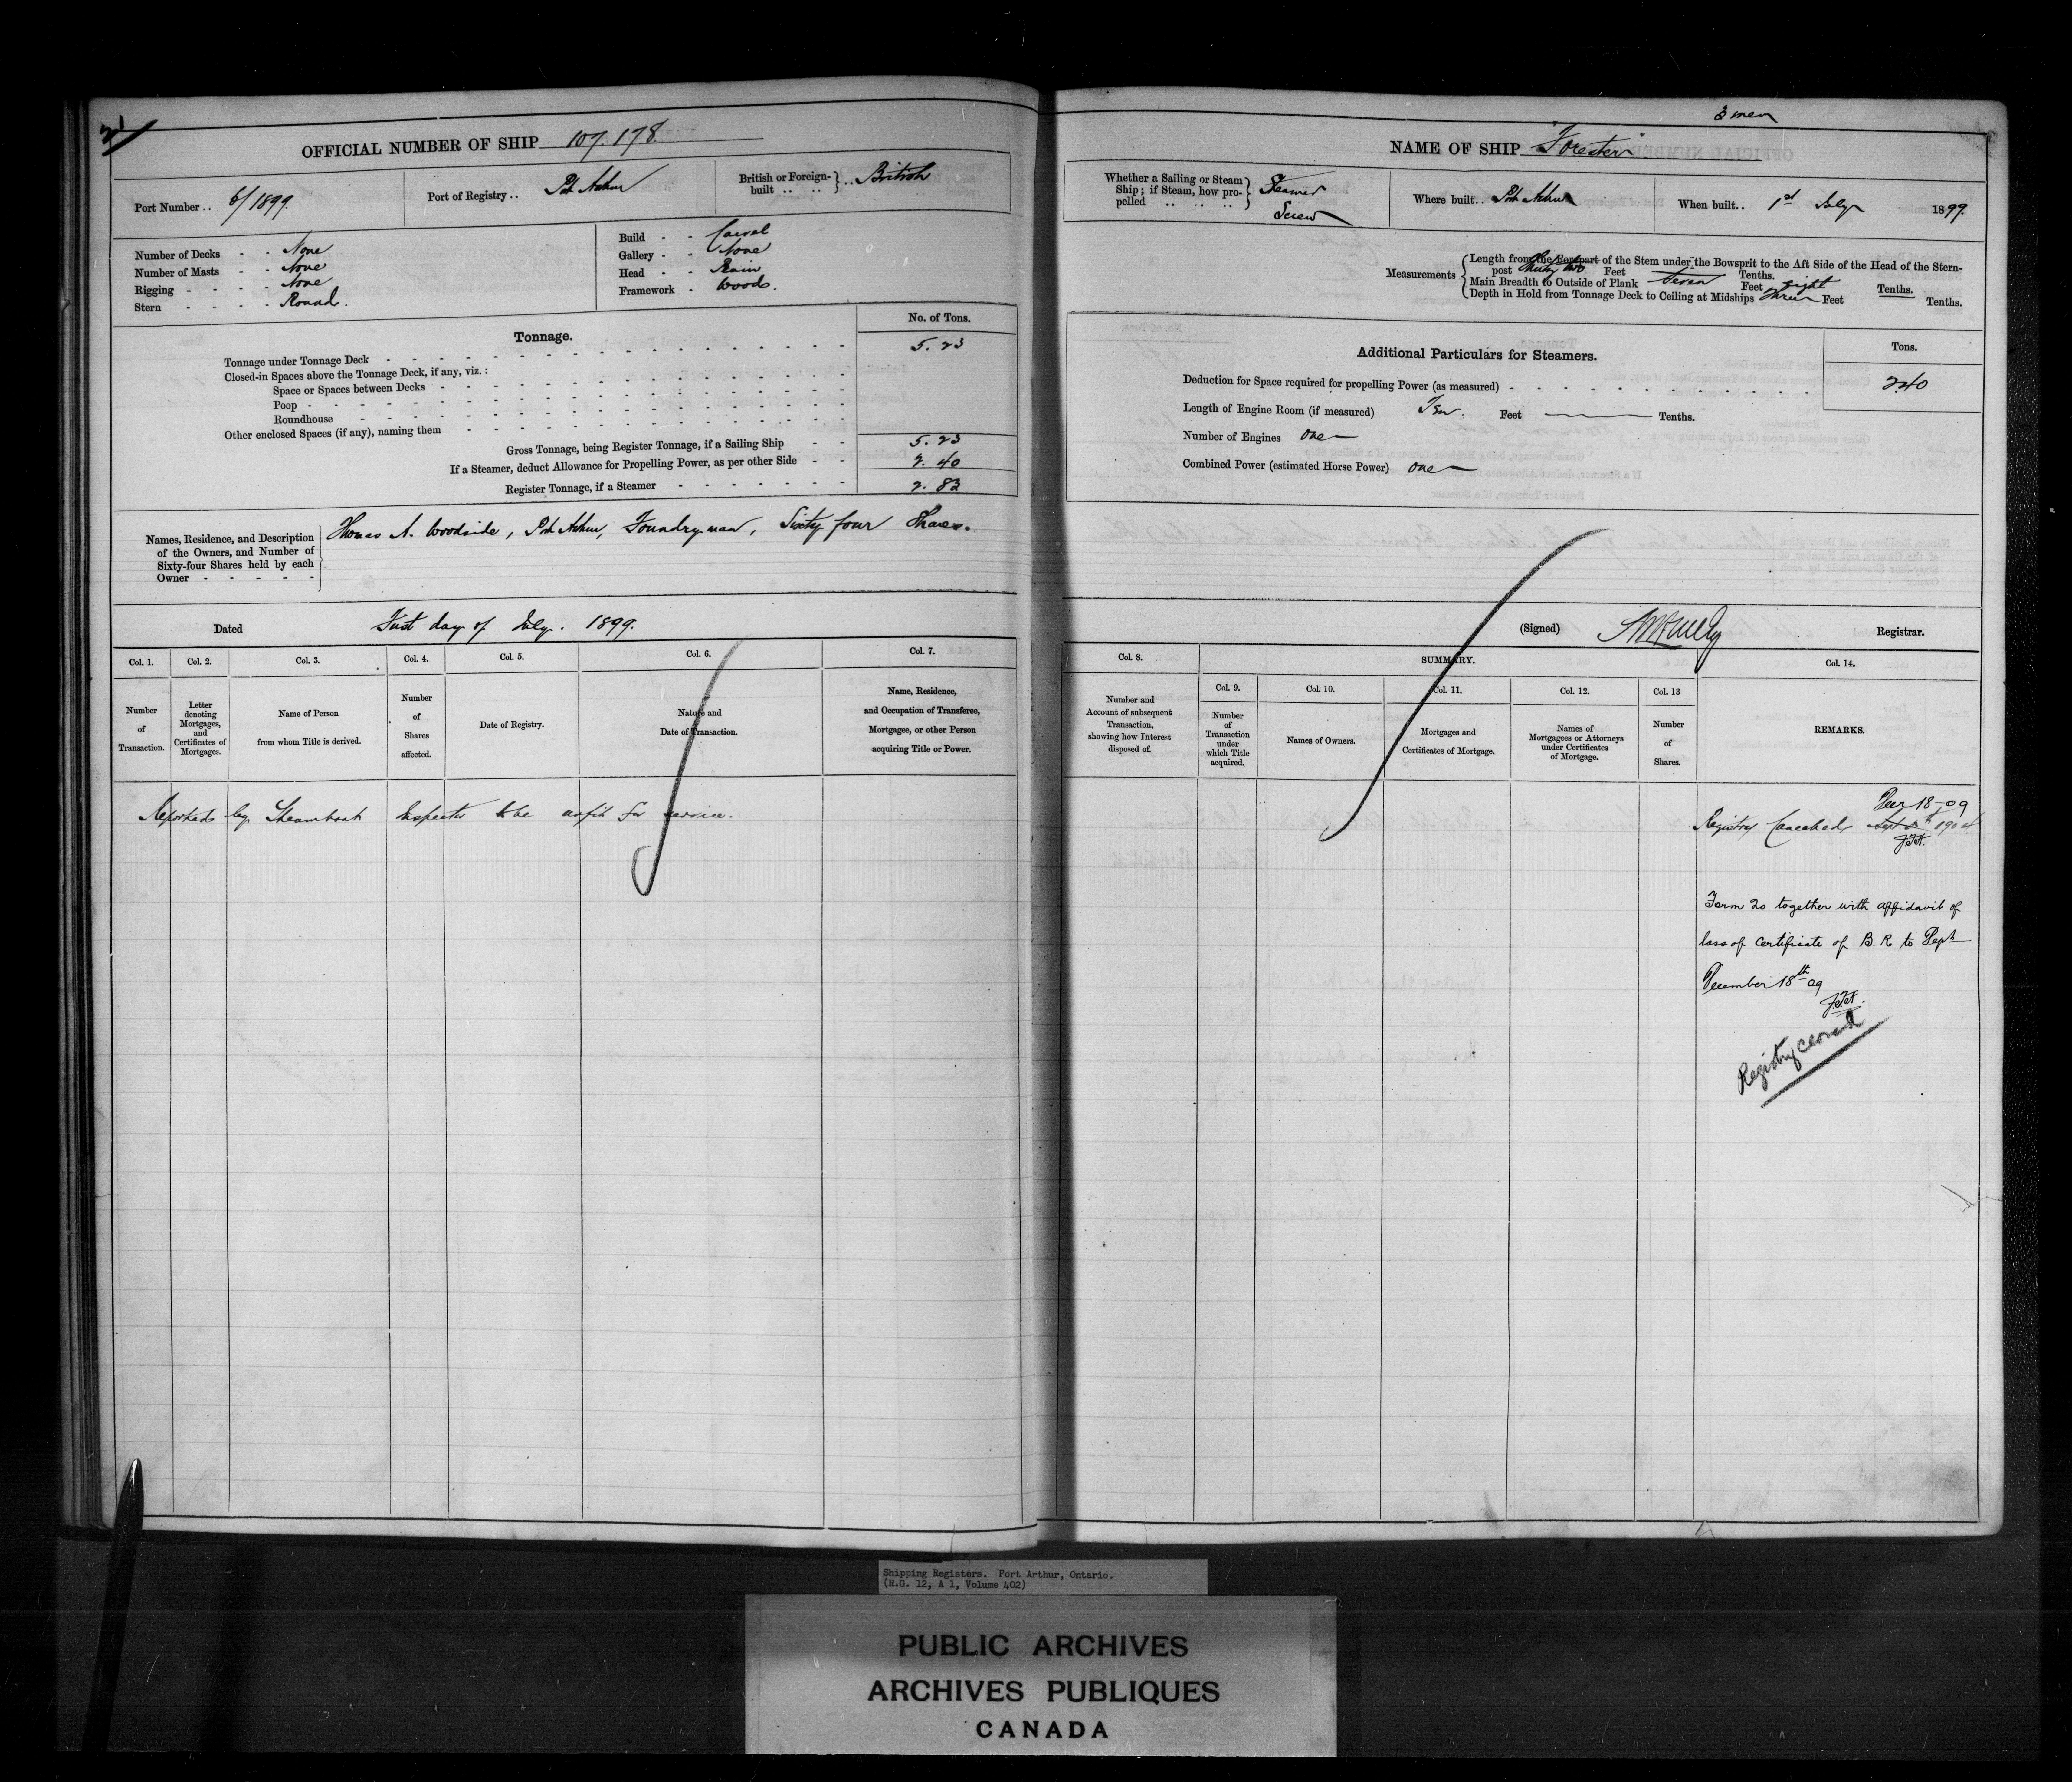 OFFICIAL NUMBER OF SHIP 107.178.
Port Number .. 6/1899.
Port of Registry .. Pt Arthur
British or Foreign-built .. .. } .. British
Number of Decks - - None
Number of Masts - - None
Rigging - - - - None
Stern - - - - Round.
Build - - Carvel
Gallery - - None
Head - - Plain
Framework - Wood.
Tonnage.
No. of Tons.
Tonnage under Tonnage Deck 5.23
Closed-in Spaces above the Tonnage Deck, if any, viz.:
Space or Spaces between Decks
Poop
Roundhouse
Other enclosed Spaces (if any), naming them
Gross Tonnage, being Register Tonnage, if a Sailing Ship 5.23
If a Steamer, deduct Allowance for Propelling Power, as per other Side 2.40
Register Tonnage, if a Steamer 2.83
Names, Residence, and Description
of the Owners, and Number of
Sixty-four Shares held by each
Owner
Thomas A. Woodside, Pt Arthur, Foundryman, Sixty four Shares.
Dated First day of July. 1899.
Col. 1. Col. 2. Col. 3. Col. 4. Col. 5. Col. 6. Col. 7.
Number of Transaction.
Letter denoting Mortgages, and Certificates of Mortgages.
Name of Person from whom Title is derived.
Number of Shares affected.
Date of Registry.
Nature and Date of Transaction.
Name, Residence, and Occupation of Transferee, Mortgagee, or other Person acquiring Title or Power.
Reported by Steamboat Inspector to be unfit for service.
3 men
NAME OF SHIP "Forester"
Whether a Sailing or Steam
Ship; if Steam, how pro-
pelled .. .. ..
Steamer
Screw
Where built .. Pt Arthur
When built .. 1st July 1899.
Measurements
Length from the Forepart of the Stem under the Bowsprit to the Aft Side of the Head of the Stern-
post Thirty two Feet Tenths.
Main Breadth to Outside of Plank Seven Feet eight Tenths.
Depth in Hold from Tonnage Deck to Ceiling at Midships Three Feet Tenths.
Additional Particulars for Steamers.
Tons.
Deduction for Space required for propelling Power (as measured) 2.40
Length of Engine Room (if measured) Ten. Feet Tenths.
Number of Engines One
Combined Power (estimated Horse Power) One
(Signed) Registrar.
Col. 8. SUMMARY. Col. 14.
Col. 9. Col. 10. Col. 11. Col. 12. Col. 13
Number and Account of subsequent Transaction, showing how Interest disposed of.
Number of Transaction under which Title acquired.
Names of Owners.
Mortgages and Certificates of Mortgage.
Names of Mortgagees or Attorneys under Certificates of Mortgage.
Number of Shares.
REMARKS.
Decr 18-09
Registry Cancelled Sept 1904
Form 20 together with affidavit of
loss of Certificate of B. R to Dept
December 18th 09
Registry closed
Shipping Registers. Port Arthur, Ontario.
(R.G. 12, A 1, Volume 402)
PUBLIC ARCHIVES
ARCHIVES PUBLIQUES
CANADA